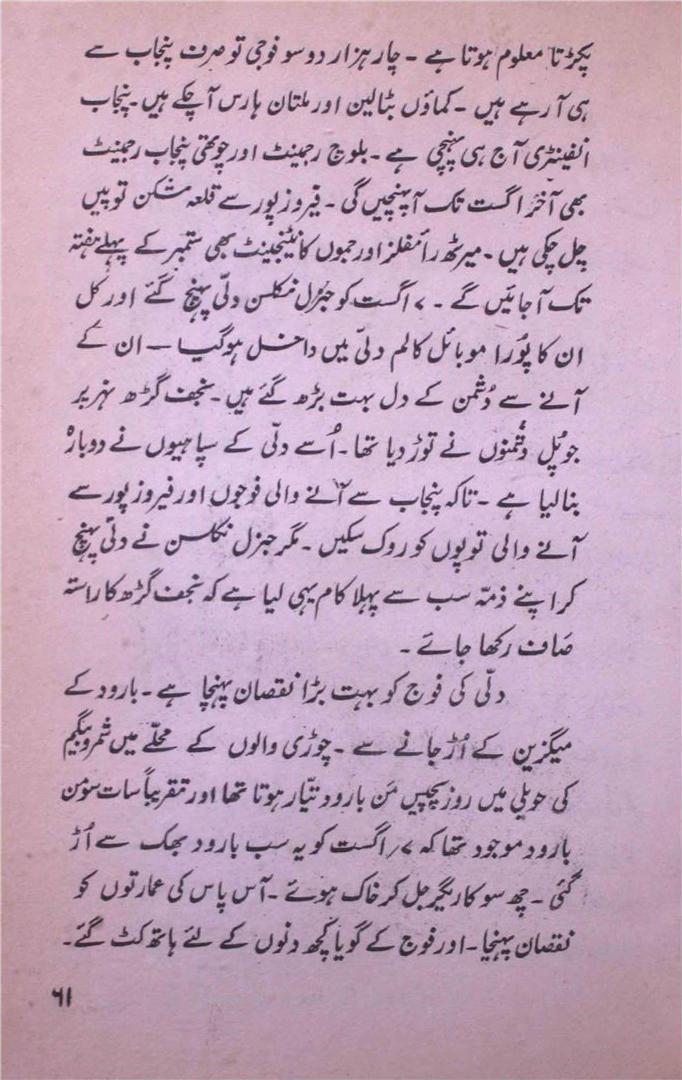 پکڑتا معلوم ہوتا ہے ۔ چار ہزار دو سو فوجی تو صرف پنجاب سے
ہی آ رہے ہیں ۔ کماؤں بٹالین اور ملتان ہارس آ چکے ہیں ۔ پنجاب
انفینٹری آج ہی پہنچی ہے ۔ بلوچ رجمینٹ اور چوتھی پنجاب رجمینٹ
بھی آخر اگست تک آ پہنچیں گی ۔ فیروز پور سے قلعہ شکن توپیں
چل چکی ہیں ۔ میرٹھ رائفلز اور جموں کانٹینجینٹ بھی ستمبر کے پہلے ہفتہ
تک آ جائیں گے ۔ ۷ اگست کو جنرل نکلسن دلّی پہنچ گئے اور کل
ان کا پُورا موبائل کالم دلّی میں داخل ہو گیا — ان کے
آنے سے دُشمن کے دل بہت بڑھ گئے ہیں ۔ نجف گڑھ نہر پر
جو پُل دشمنوں نے توڑ دیا تھا ۔ اُسے دلّی کے سپاہیوں نے دوبارہ
بنا لیا ہے ۔ تاکہ پنجاب سے آنے والی فوجوں اور فیروز پور سے
آنے والی توپوں کو روک سکیں ۔ مگر جنرل نکلسن نے دلّی پہنچ
کر اپنے ذمّہ سب سے پہلا کام یہی لیا ہے کہ نجف گڑھ کا راستہ
صاف رکھا جائے ۔
دلّی کی فوج کو بہت بڑا نقصان پہنچا ہے ۔ بارود کے
میگزین کے اُڑ جانے سے ۔ چوڑی والوں کے محلّے میں شمرو بیگم
کی حویلی میں روز پچیس مَن بارود تیّار ہوتا تھا اور تقریباً سات سو مَن
بارود موجود تھا کہ ۷/ اگست کو یہ سب بارود بھک سے اُڑ
گئی ۔ چھ سو کاریگر جل کر خاک ہوئے ۔ آس پاس کی عمارتوں کو
نقصان پہنچا ۔ اور فوج کے گویا کچھ دنوں کے لئے ہاتھ کٹ گئے ۔
۶۱